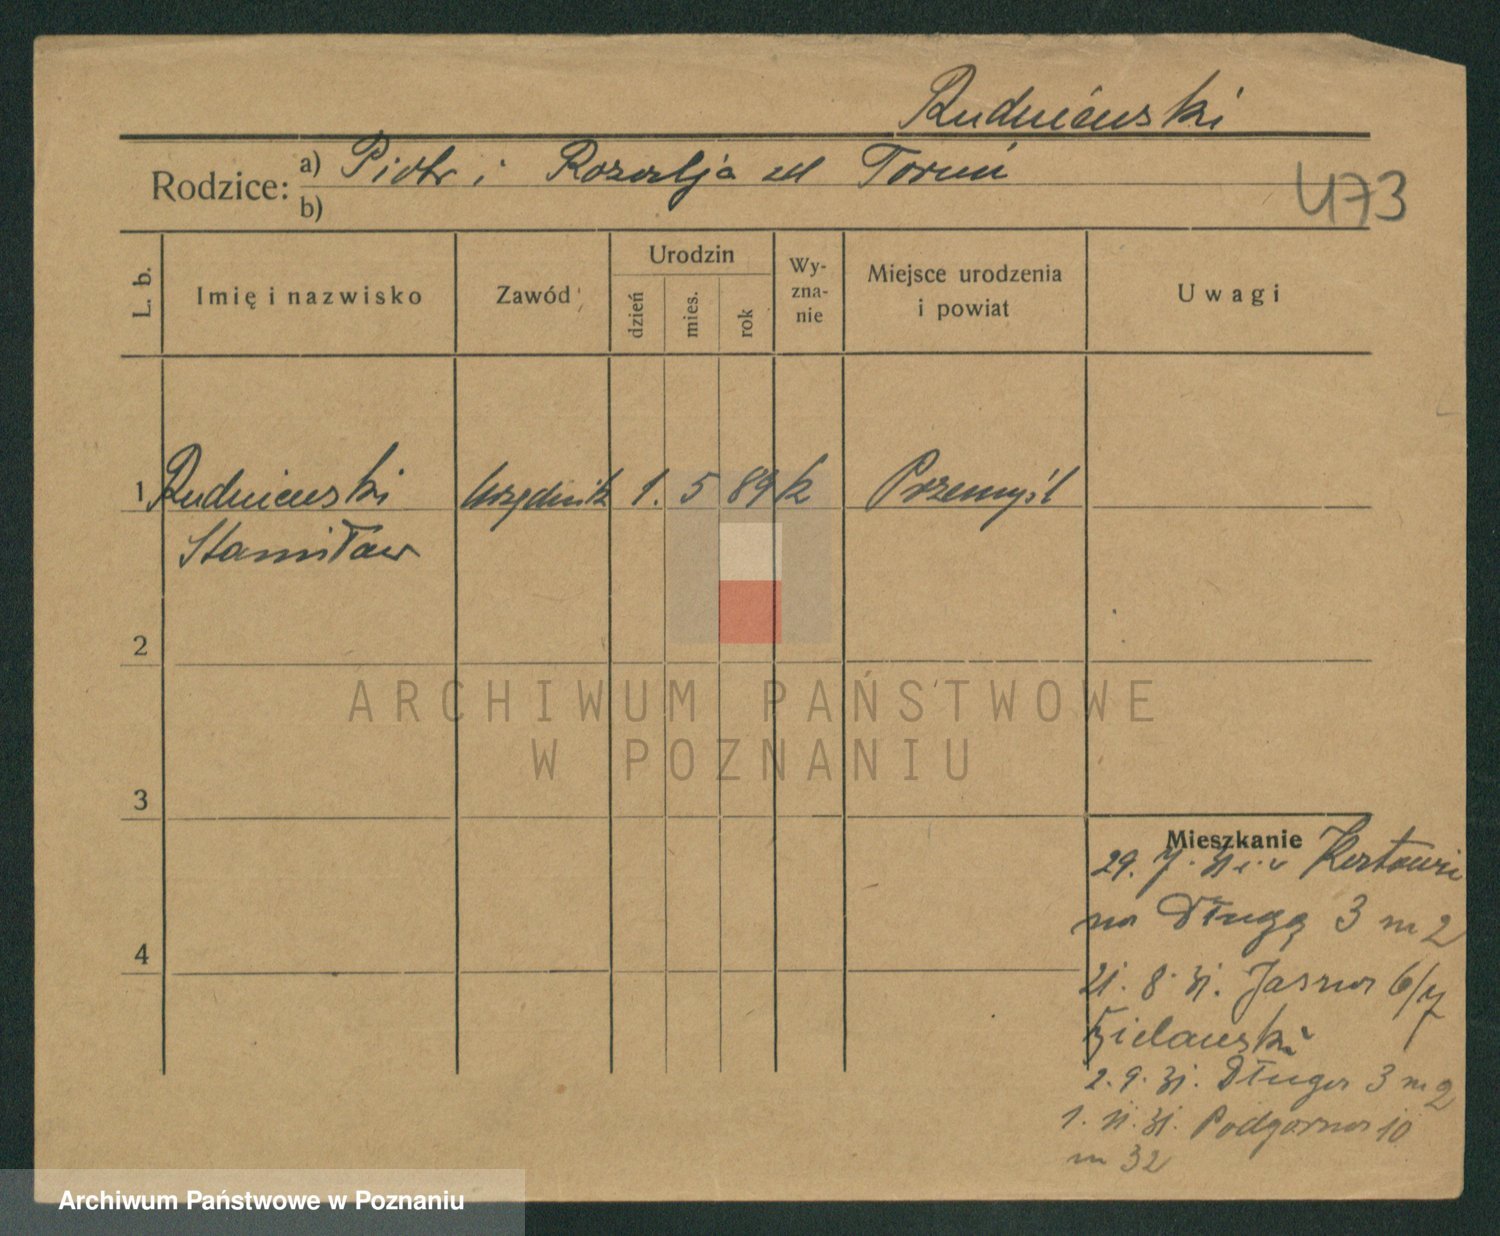 Rudniewski
Rodzice: a) Piotr i Rozalja zd Toruń
b)
473
L. b.
Imię i nazwisko
Zawód
Urodzin
dzień
mies.
rok
Wy-
zna-
nie
Miejsce urodzenia
i powiat
Uwagi
1 Rudniewski Urzędnik 1. 5 89 k Przemyśl
Stanisław
2
ARCHIWUM PAŃSTWOWE
W POZNANIU
3
Mieszkanie
29. 7. 31
na Długą 3 m 2
21. 8. 31. Jasna 6/7
Zielawski
2. 9. 31. Długa 3 m 2
4
1. 11. 31. Podgorna 10
m 32
Archiwum Państwowe w Poznaniu